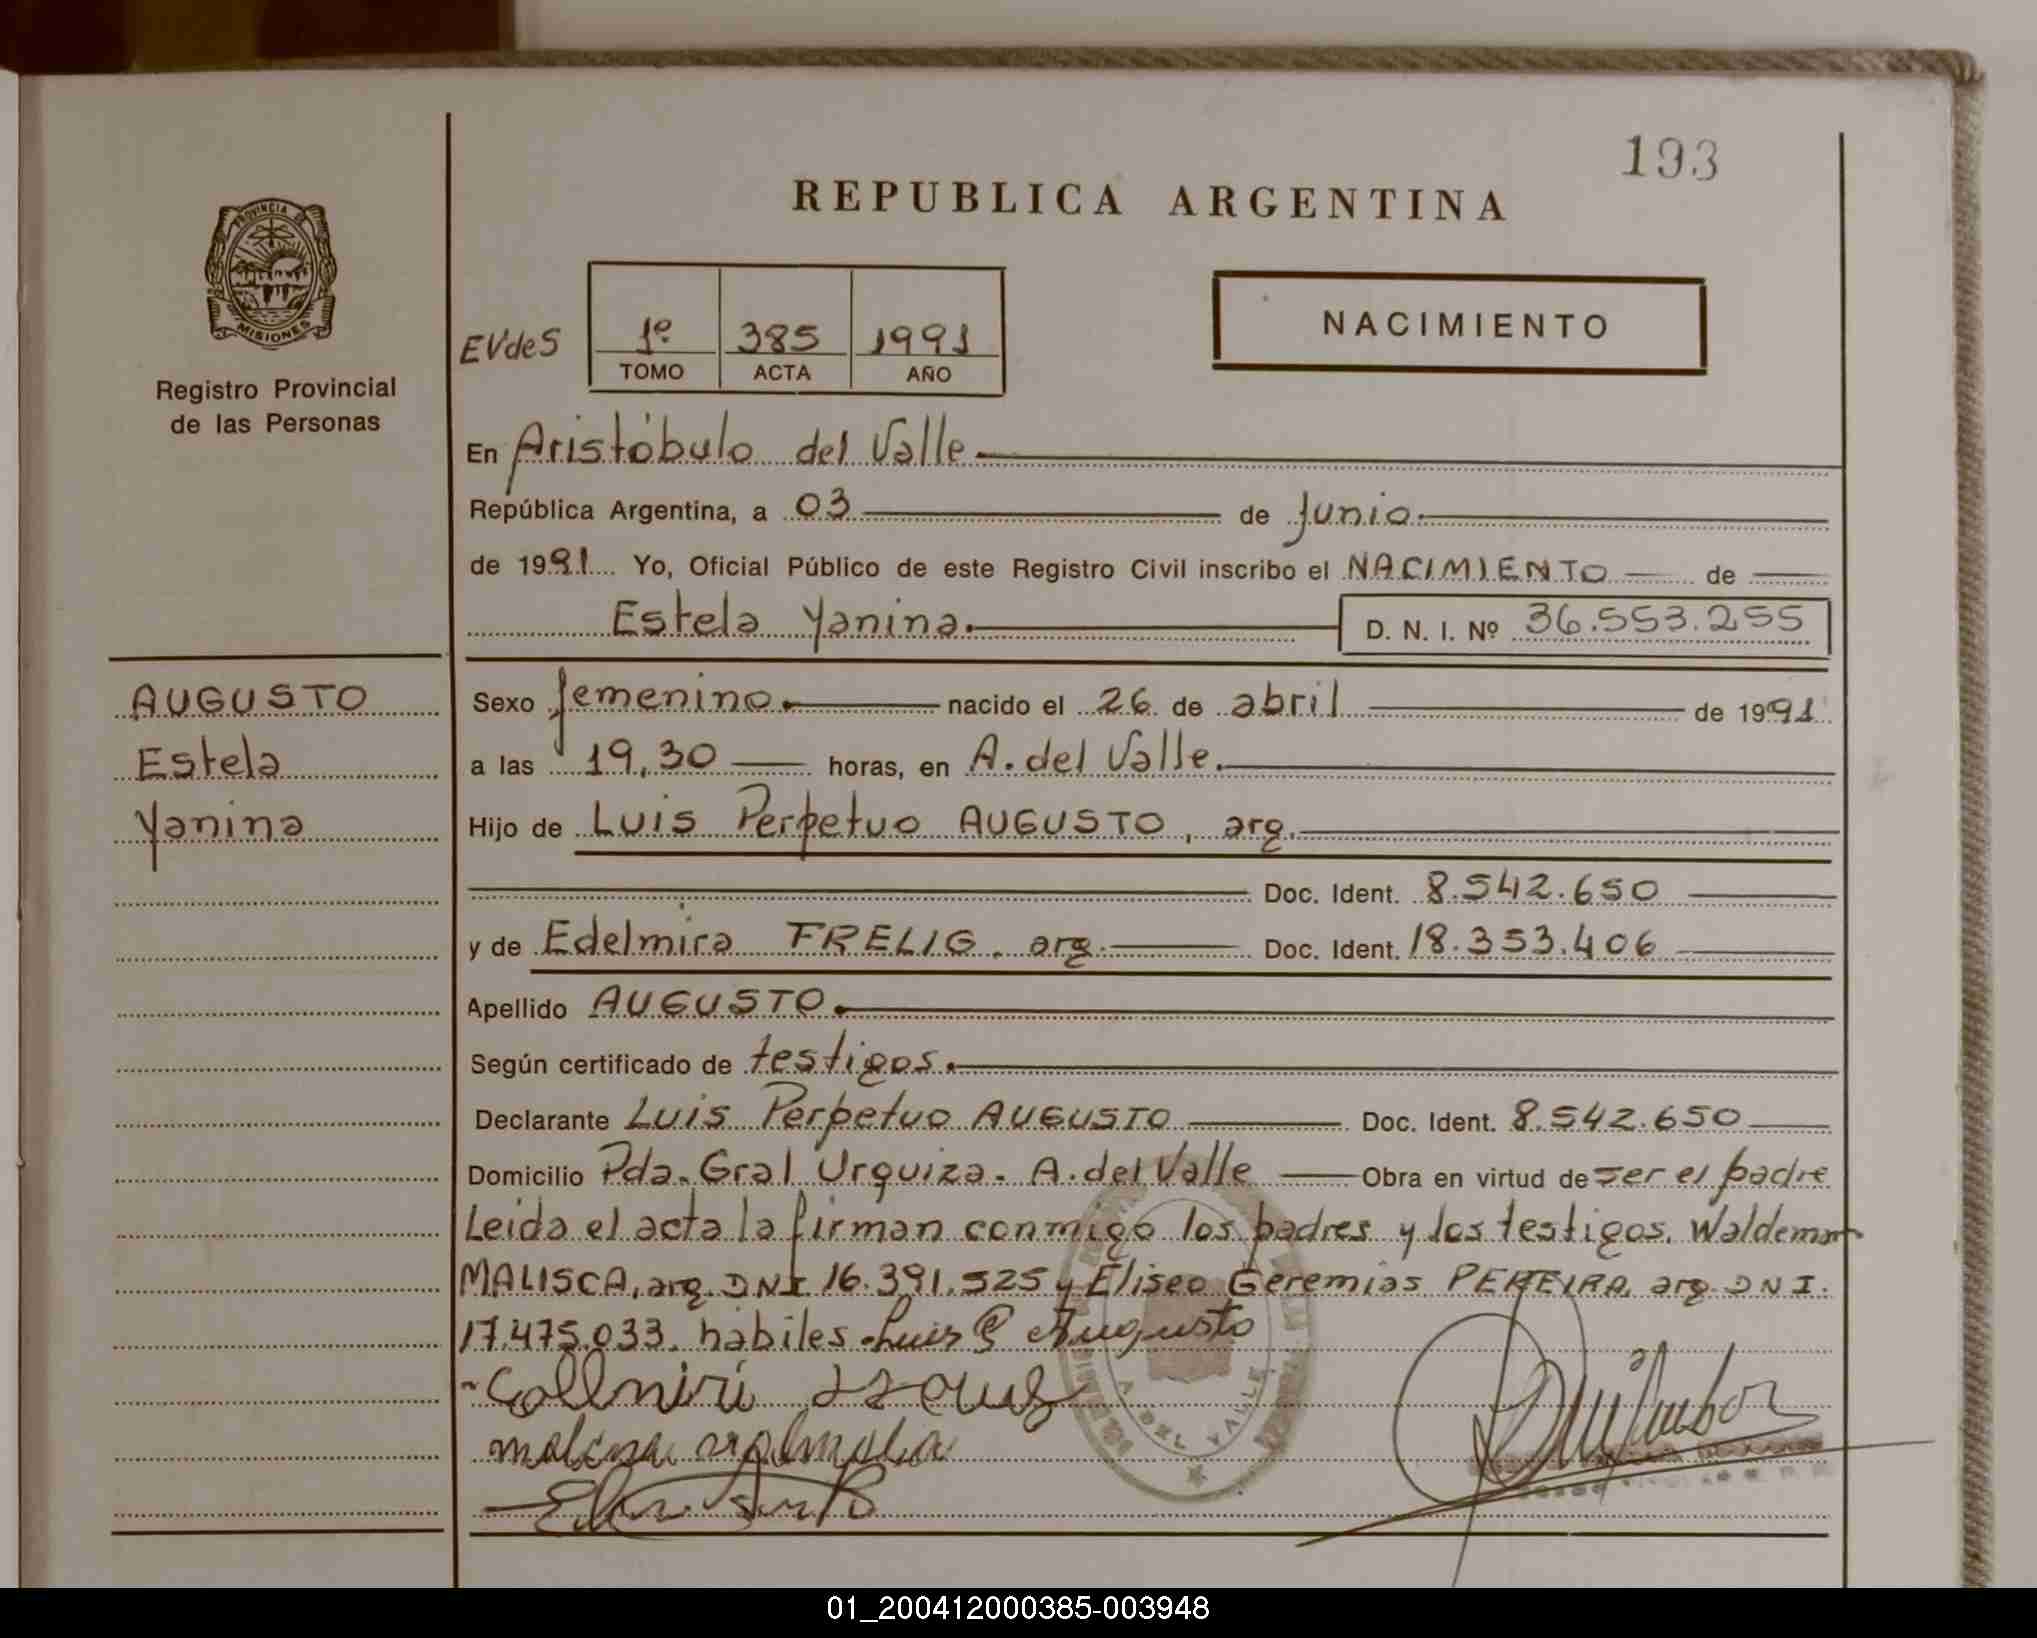 193
REPUBLICA ARGENTINA
PROVINCIA DE
MISIONES
Registro Provincial
de las Personas
EVdeS
1º 385 1991
TOMO ACTA AÑO
NACIMIENTO
En Aristóbulo del Valle
República Argentina, a 03 de Junio
de 1991 Yo, Oficial Público de este Registro Civil inscribo el NACIMIENTO de
Estela Yanina. D. N. I. Nº 36.553.255
AUGUSTO
Estela
Yanina
Sexo femenino. nacido el 26 de abril de 1991
a las 19,30 horas, en A. del Valle.
Hijo de Luis Perpetuo AUGUSTO, arg.
Doc. Ident. 8.542.650
y de Edelmira FRELIG, arg. Doc. Ident. 18.353.406
Apellido AUGUSTO.
Según certificado de testigos.
Declarante Luis Perpetuo AUGUSTO Doc. Ident. 8.542.650
Domicilio Pda. Gral Urquiza. A. del Valle Obra en virtud de ser el padre
Leida el acta la firman conmigo los padres y los testigos, Waldemar
MALISCA, arg. DNI 16.391.525 y Eliseo Geremias PEREIRA, arg. DNI.
17.475.033, habiles. Luis P Augusto
A. DEL VALLE
01_200412000385-003948